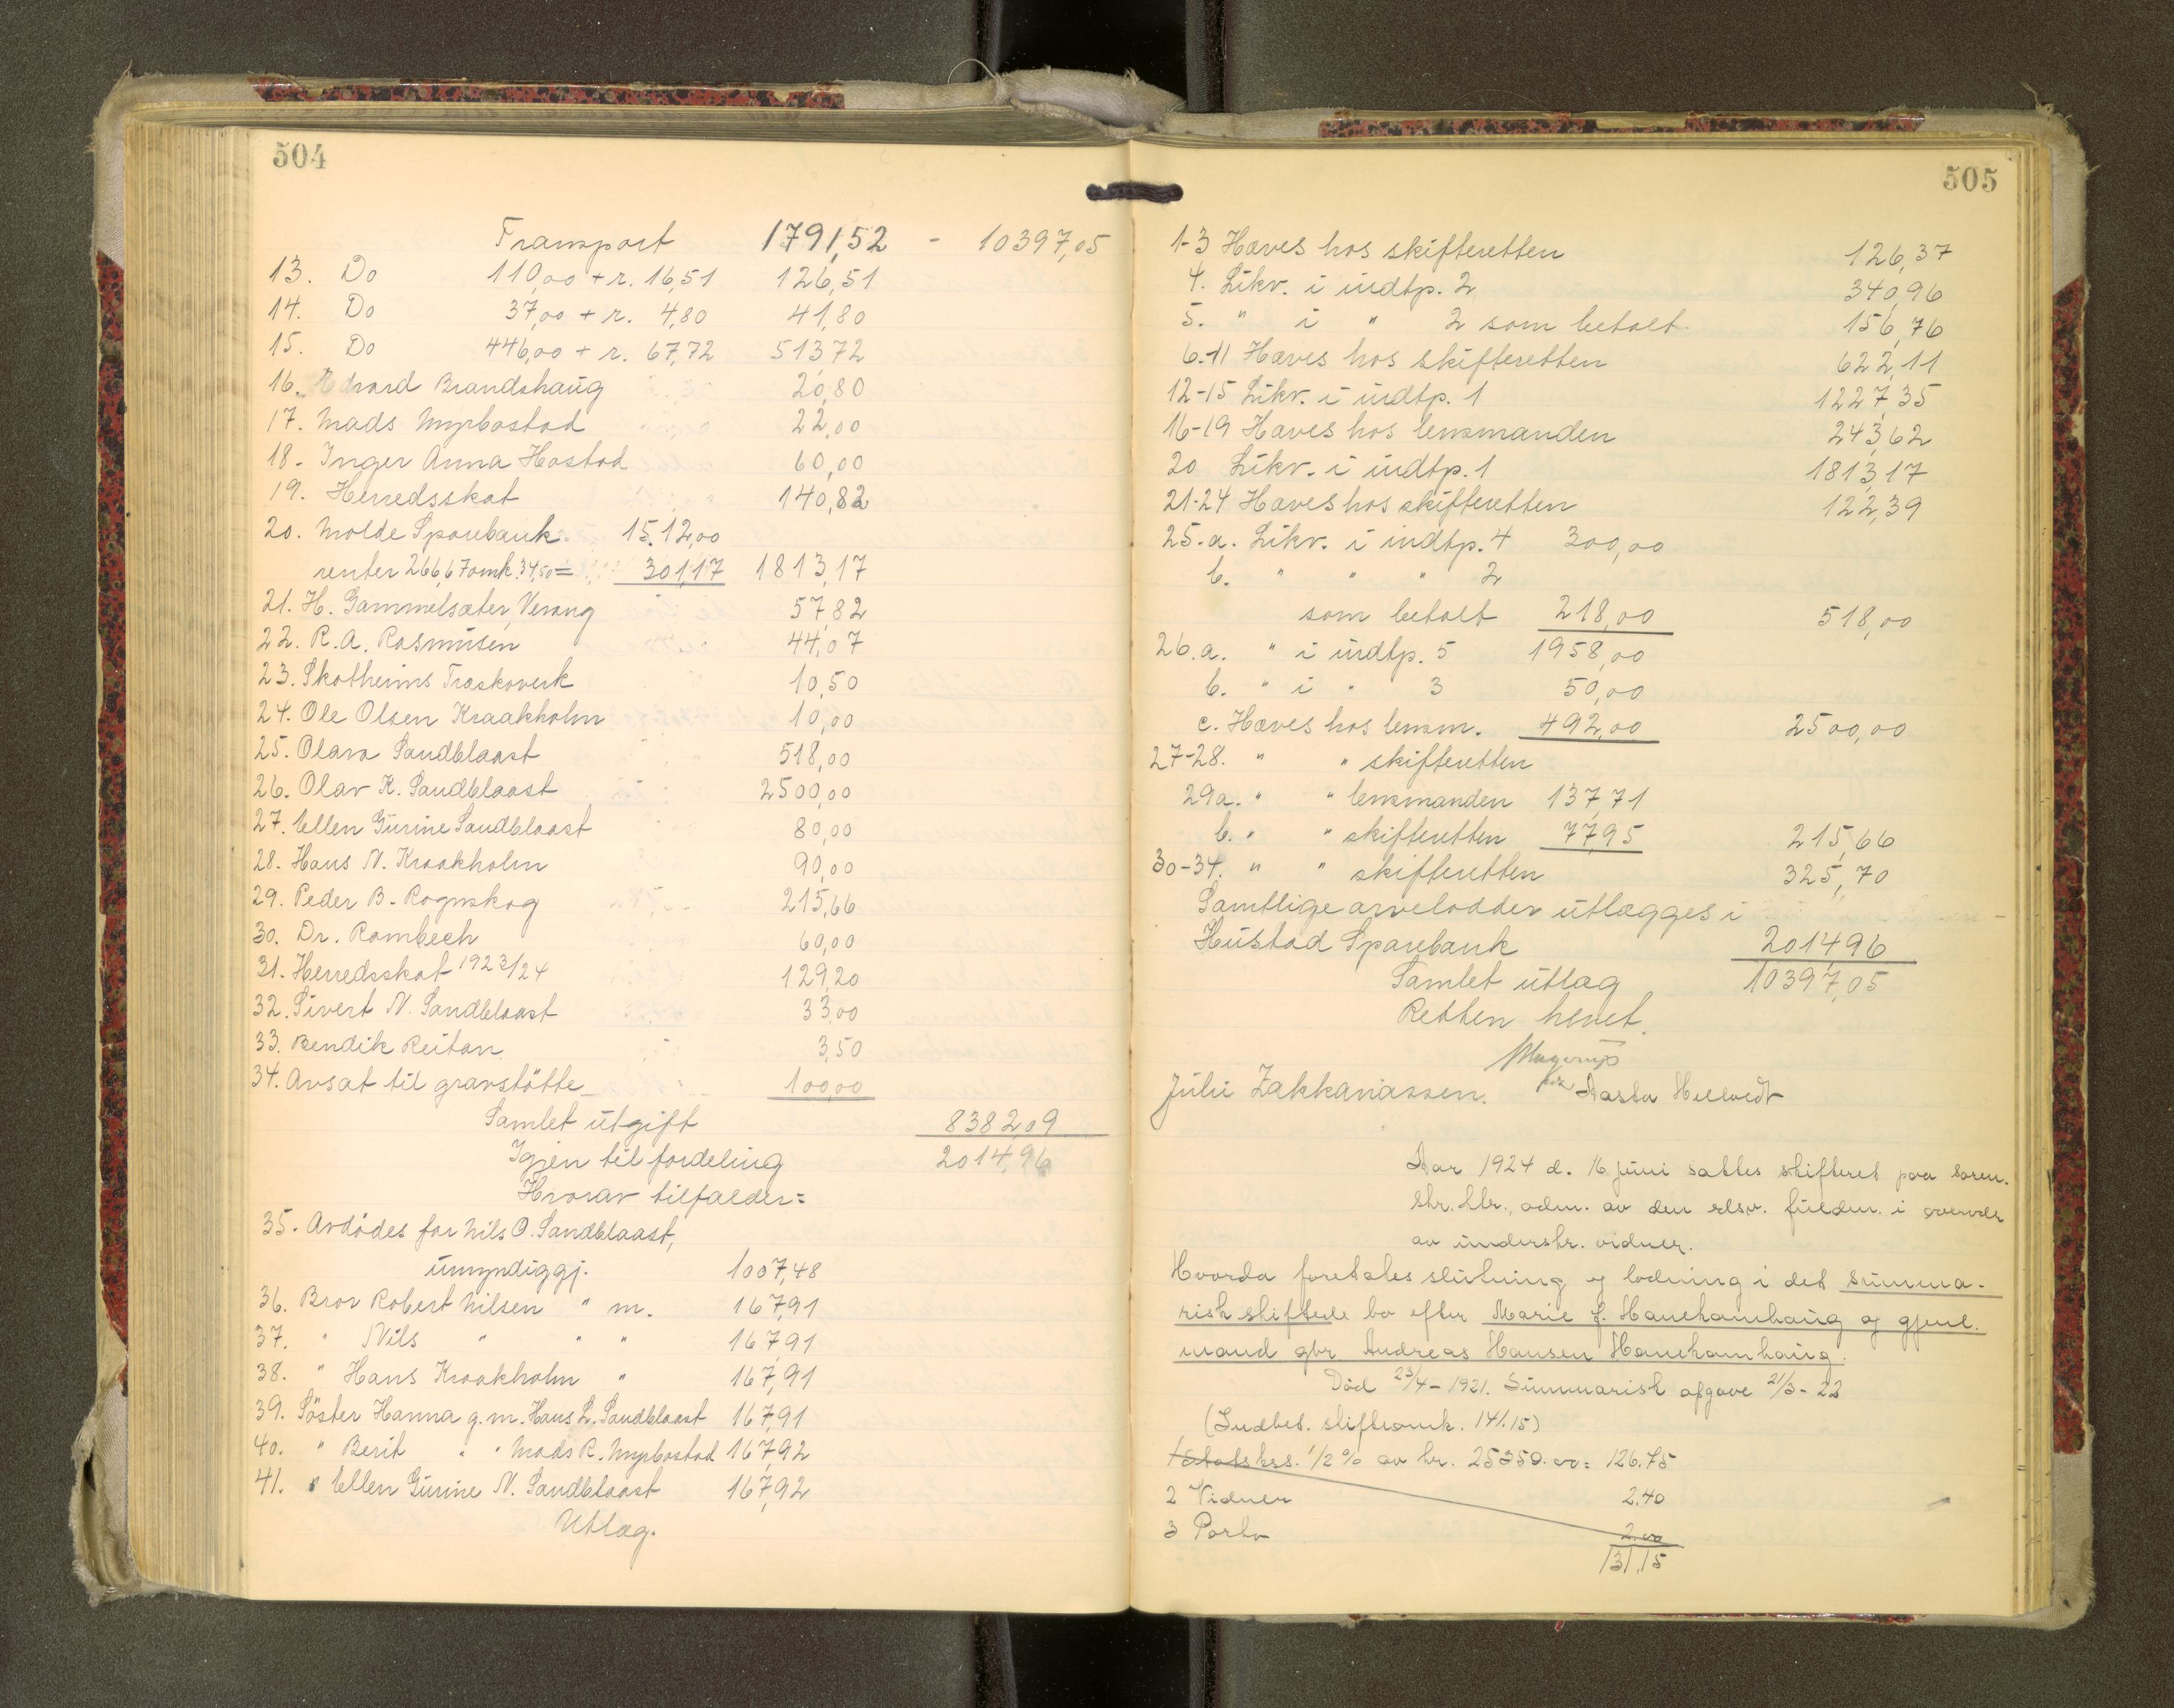 504
Transport 1791,52 - 10397,05
13. Do 110,00 + r. 16,51 126,51
14. Do 37,00 + r. 4,80 41,80
15. Do 446,00 + r. 67,72 513,72
16. Edvard Brandshaug 20,80
17. Mads Myrbostad 22,00
18. Inger Anna Hostad 60,00
19. Herredsskat 140,82
20. Molde Sparebank 15.12,00
renter 266,67 omk. 34,50 = 301,17 1813,17
21. H. Gammelsæter, Vevang 57,82
22. R.A. Rasmusen 44,07
23. Skotheims Træskoverk 10,50
24. Ole Olsen Kraakholm 10,00
25. Olava Sandblaast 518,00
26. Olav K. Sandblaast 2500,00
27. Ellen Gurine Sandblaast 80,00
28. Hans N. Kraakholm 90,00
29. Peder B. Rognskog 215,66
30. Dr. Rambech 60,00
31. Herredsskat 1923/24 129,20
32. Sivert N. Sandblaast 33,00
33. Bendik Reitan 3,50
34. Avsat til gravstötte 100,00
Samlet utgift 8382,09
Igjen til fordeling 2014,96
Hvorav tilfalder:
35. Avdödes far Nils O. Sandblaast,
umyndiggj. 1007,48
36. Bror Robert Nilsen " m. 167,91
37. " Nils " " " 167,91
38. " Hans Kraakholm " 167,91
39. Söster Hanna g.m. Hans L. Sandblaast 167,91
40. " Berit " " Mads R. Myrbostad 167,92
41. " Ellen Gurine N. Sandblaast 167,92
Utlæg.
505
1-3 Hæves hos skifteretten 126,37
4. Likv. i indtp. 2 340,96
5. " i " 2 som betalt 156,76
6-11 Hæves hos skifteretten 622,11
12-15 Likv. i indtp. 1 1227,35
16-19 Hæves hos lensmanden 243,62
20 Likv. i indtp. 1 1813,17
21-24 Hæves hos skifteretten 122,39
25. a. Likv. i indtp. 4 300,00
b. " " " 2
som betalt 218,00 518,00
26. a. " i indtp. 5 1958,00
b. " i " 3 50,00
c. Hæves hos lensm. 492,00 2500,00
27-28. " " skifteretten
29a. " " lensmanden 137,71
b. " " skifteretten 77,95 215,66
30-34. " " skifteretten 325,70
Samtlige arvelodder utlægges i
Hustad Sparebank 2014,96
Samlet utlæg 10397,05
Retten hevet.
Julie Zakkariassen.
Aar 1924 d. 16 juni sattes skifteret paa soren-
skr. ktr., adm. av den edsv. fuldm. i overvær
av underskr. vidner.
Hvorda foretokes slutning og lodning i det summa-
risk skiftede bo efter Marie f. Hanehamhaug og gjenl.
mand gbr. Andreas Hansen Hanehamhaug.
Död 23/4-1921. Summarisk opgave 21/3-22
(Indbet. skifteomk. 141.15)
1 Statskss. 1/2 % av kr. 25350.00 = 126.75
2 Vidner 2.40
3 Porto 2.00
131,15